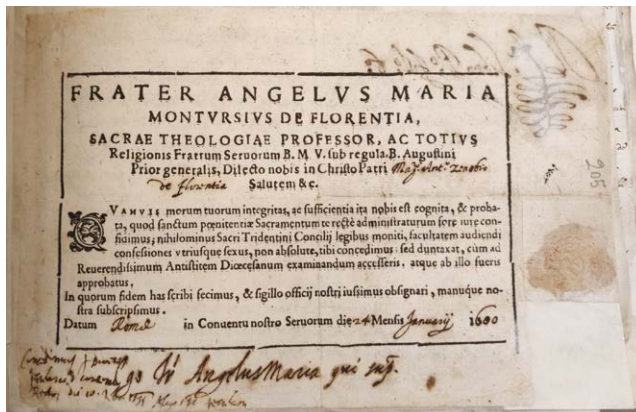 FRATER ANGELVS MARIA
MONTVRSIVS DE FLORENTIA,
SACRAE THEOLOGIAE PROFESSOR, AC TOTIVS
Religionis Fratrum Seruorum B. M V. sub regula. B. Augustini
Prior generalis, Dilecto nobis in Christo Patri
de florentia Salutem &c.
QVAMVIS morum tuorum integritas, ac sufficientia ita nobis est cognita, & proba-
ta, quod sanctum pœnitentiæ Sacramentum te rectè administraturum fore iure con-
fidimus; nihilominus Sacri Tridentini Concilij legibus moniti, facultatem audiendi
confessiones vtriusque sexus, non absolute, tibi concedimus: sed duntaxat, cum ad
Reuerendissimum Antistitem Diœcesanum examinandum accesseris, atque ab illo fueris
approbatus.
In quorum fidem has scribi fecimus, & sigillo officij nostri iussimus obsignari, manuque no-
stra subscripsimus.
Datum Romæ in Conuentu nostro Seruorum die 24 Mensis Januarij 1600
fr Angelus Maria qui supª.
205